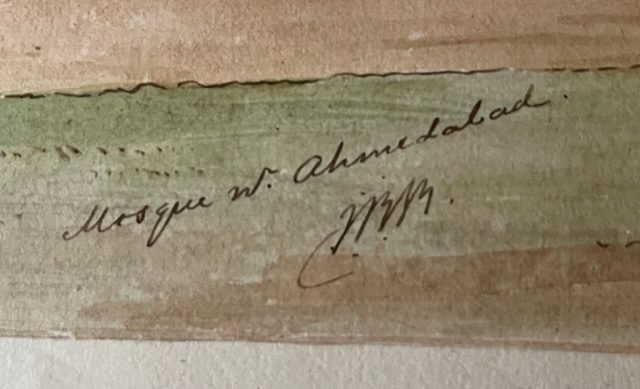 Mosque nr. Ahmedabad.